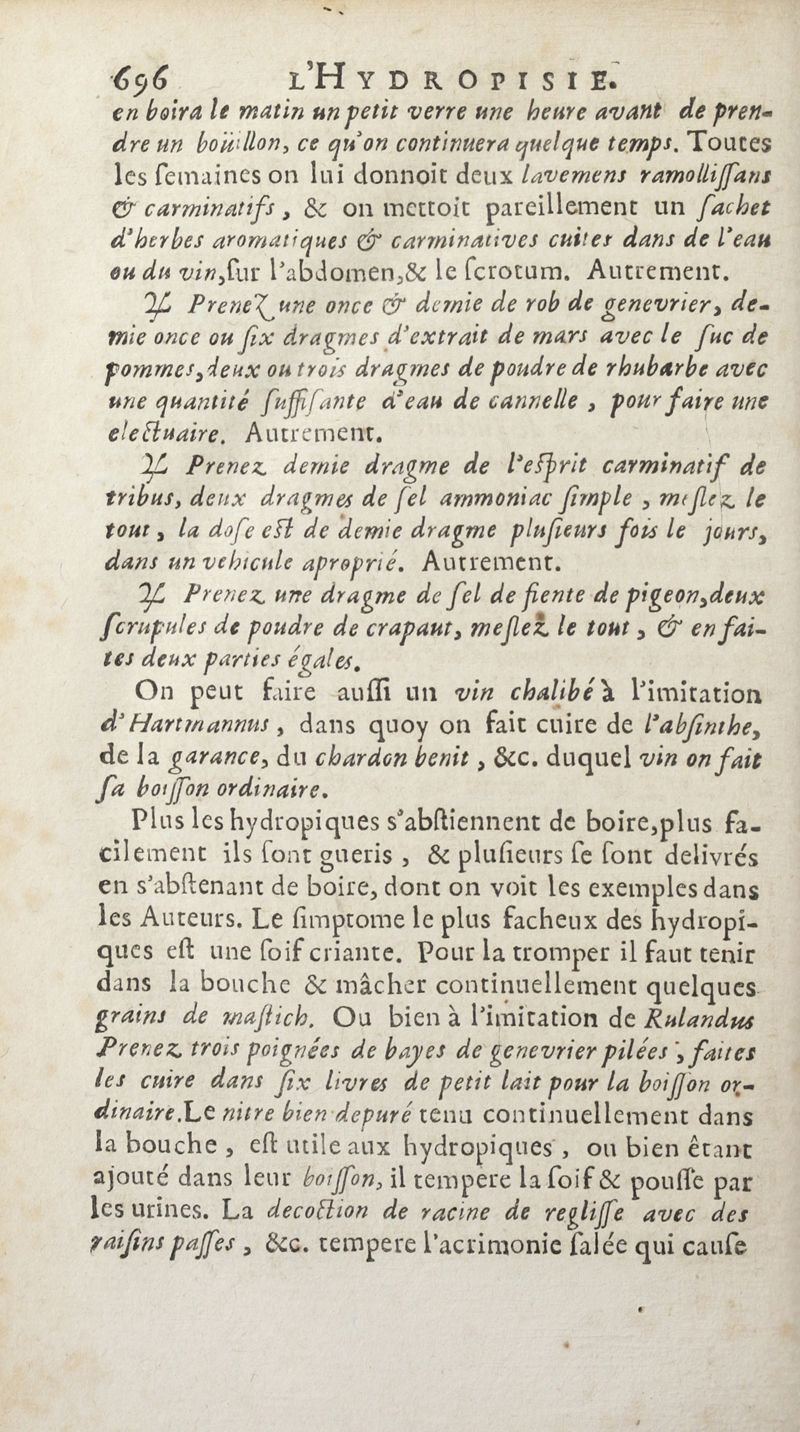 696 L'HYDROPISIE.
en boira le matin un petit verre une heure avant de pren-
dre un boüillon, ce qu'on continuera quelque temps. Toutes
les ſemaines on lui donnoit deux lavemens ramolliſſans
& carminatifs, & on mettoit pareillement un ſachet
d'herbes aromatiques & carminatives cuites dans de l'eau
ou du vin,ſur l'abdomen,& le ſcrotum. Autrement.
℞ Prenez une once & demie de rob de genevrier, de-
mie once ou ſix dragmes d'extrait de mars avec le ſuc de
pommes,deux ou trois dragmes de poudre de rhubarbe avec
une quantité ſuffiſante d'eau de cannelle, pour faire une
electuaire. Autrement.
℞ Prenez demie dragme de l'eſprit carminatif de
tribus, deux dragmes de ſel ammoniac ſimple, meſlez le
tout, la doſe eſt de demie dragme pluſieurs fois le jours,
dans un vehicule aproprié. Autrement.
℞ Prenez une dragme de ſel de fiente de pigeon,deux
ſcrupules de poudre de crapaut, meſlez le tout, & en fai-
tes deux parties égales.
On peut faire auſſi un vin chalibé à l'imitation
d'Hartmannus, dans quoy on fait cuire de l'abſinthe,
de la garance, du chardon benit, &c. duquel vin on fait
ſa boiſſon ordinaire.
Plus les hydropiques s'abſtiennent de boire,plus fa-
cilement ils ſont gueris, & pluſieurs ſe ſont delivrés
en s'abſtenant de boire, dont on voit les exemples dans
les Auteurs. Le ſimptome le plus facheux des hydropi-
ques eſt une ſoif criante. Pour la tromper il faut tenir
dans la bouche & mâcher continuellement quelques
grains de maſtich. Ou bien à l'imitation de Rulandus
Prenez trois poignées de bayes de genevrier pilées, faites
les cuire dans ſix livres de petit lait pour la boiſſon or-
dinaire.Le nitre bien depuré tenu continuellement dans
la bouche, eſt utile aux hydropiques, ou bien êtant
ajouté dans leur boiſſon, il tempere la ſoif & pouſſe par
les urines. La decoction de racine de regliſſe avec des
raiſins paſſes, &c. tempere l'acrimonie ſalée qui cauſe